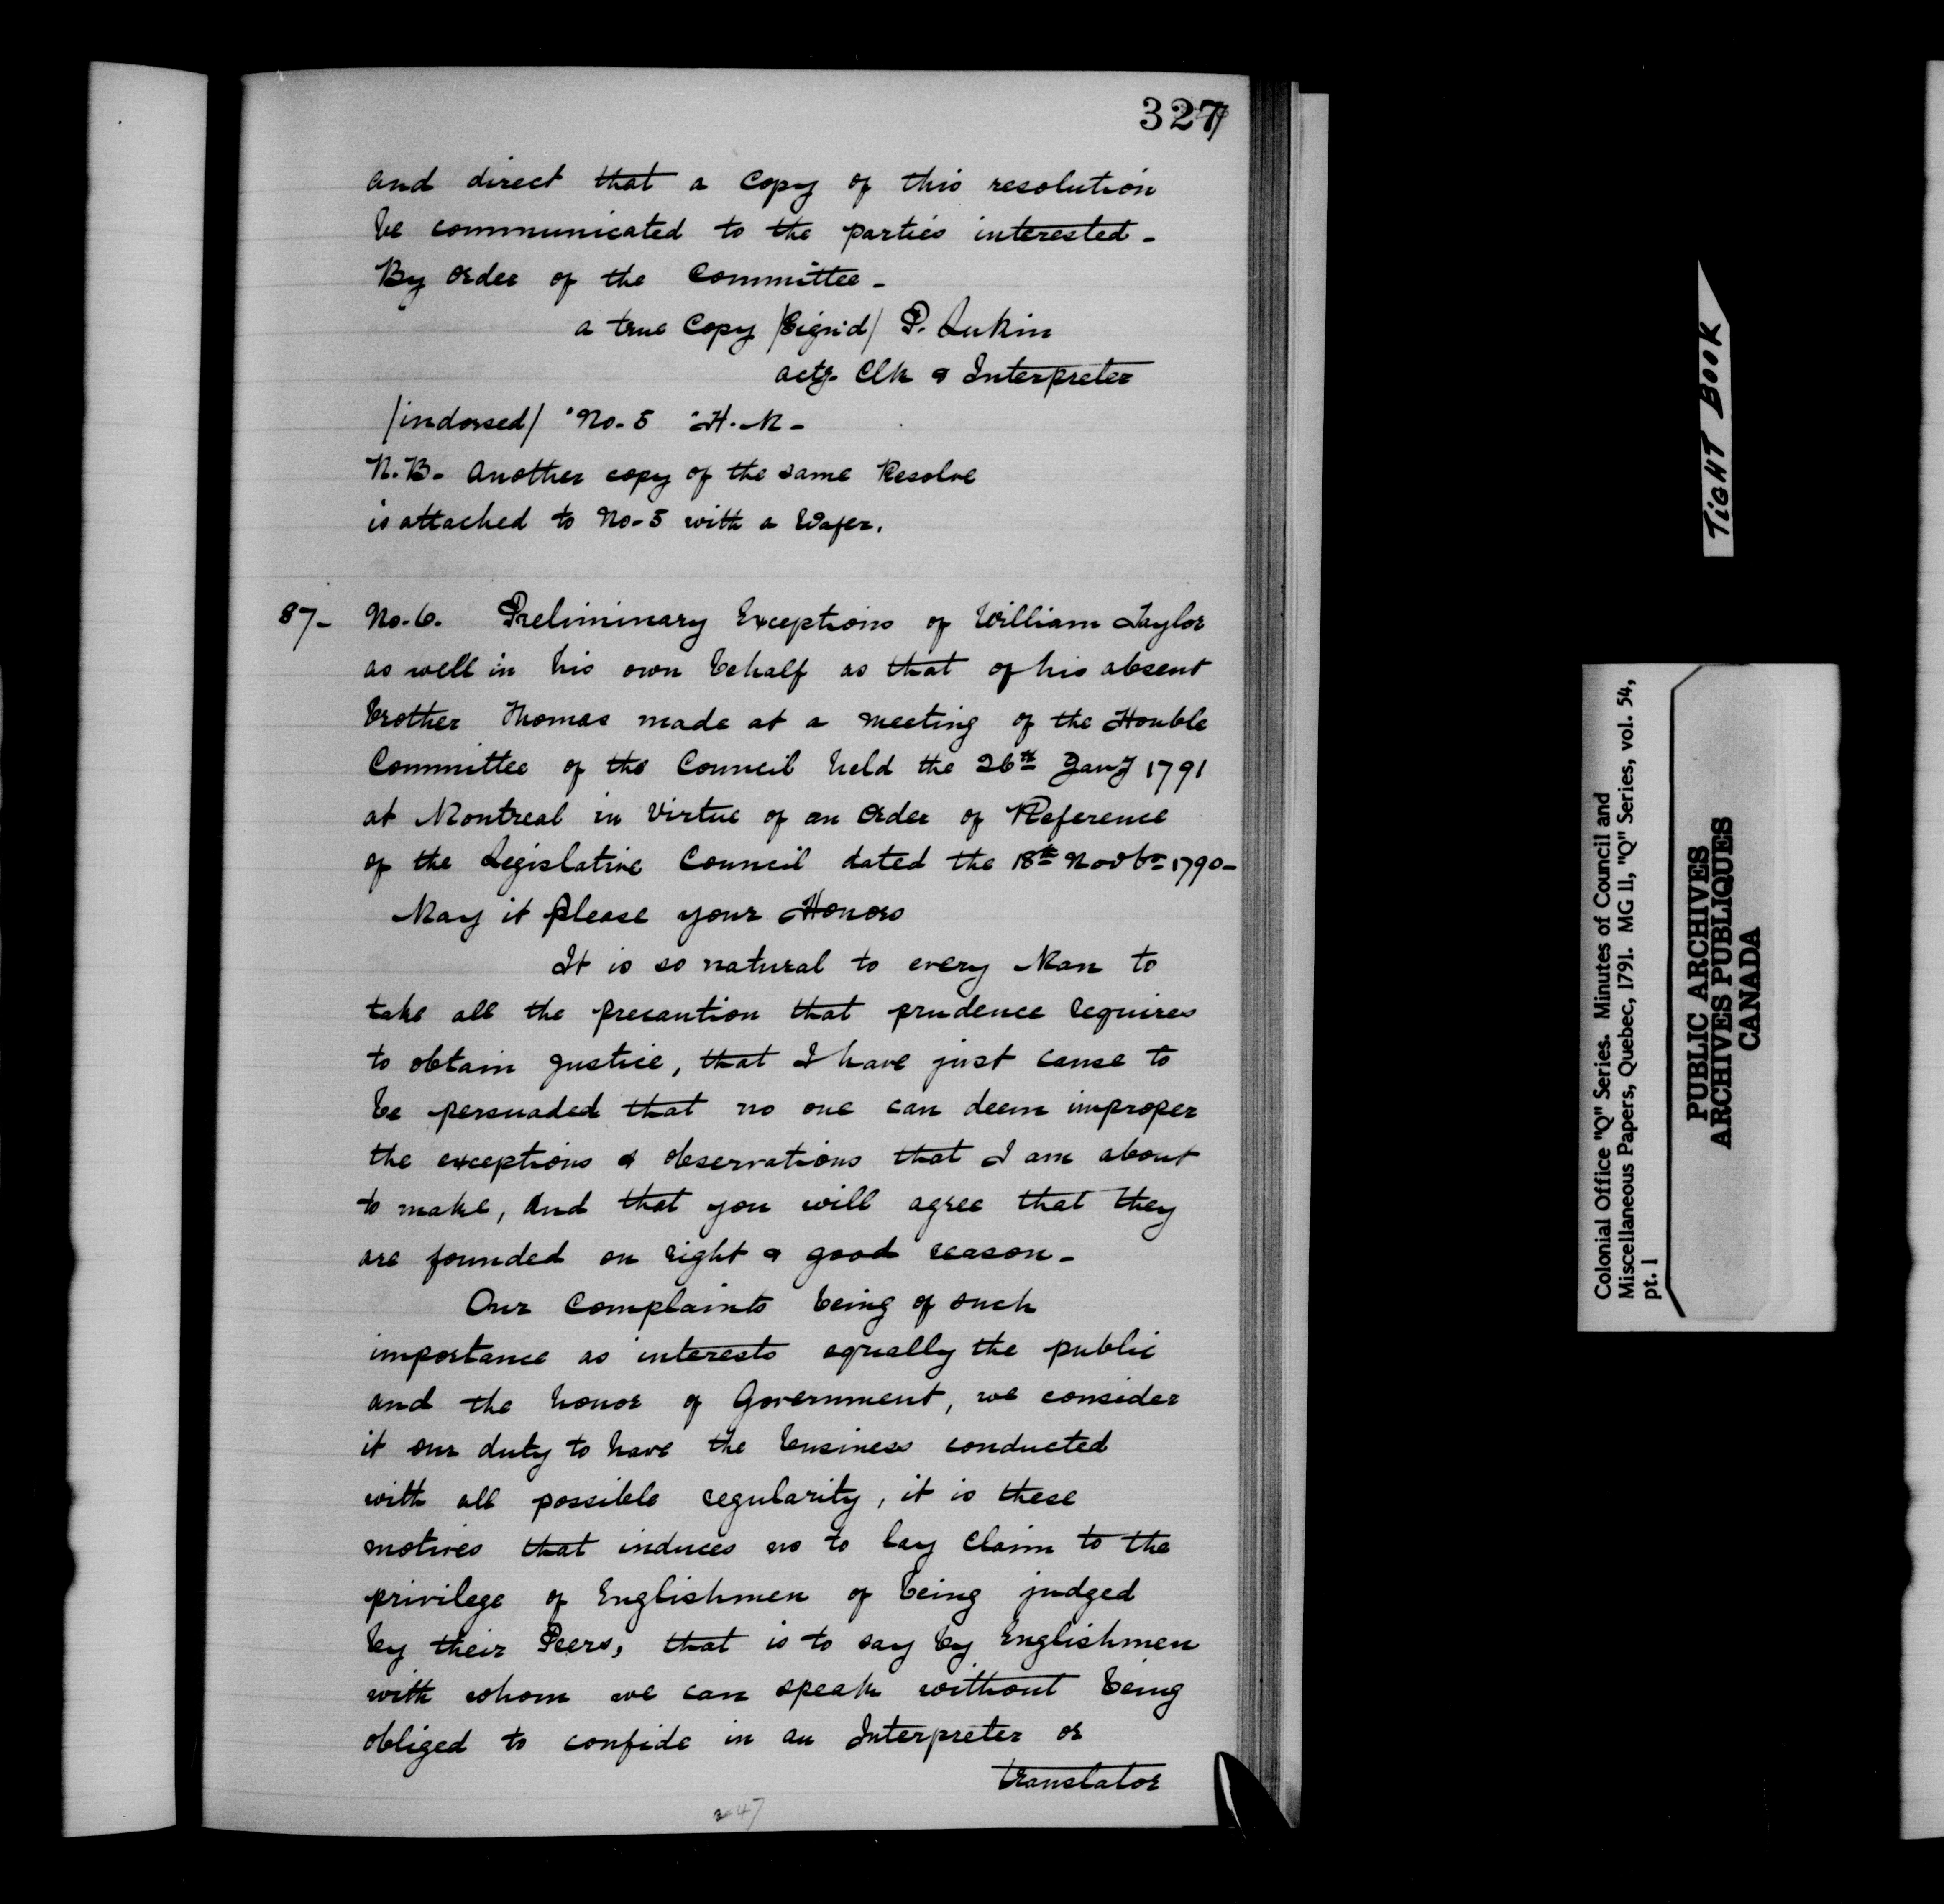 327
and direct that a Copy of this resolution
be communicated to the parties interested -
By order of the Committee -
a true Copy /Sign'd/ P. Lukin
actg. Clk & Interpreter
/indorsed/ "No. 5 "H. M -
N.B. Another copy of the same Resolve
is attached to No. 5 with a Wafer.
87 - No. 6. Preliminary Exceptions of William Taylor
as well in his own behalf as that of his absent
brother Thomas made at a meeting of the Honble
Committee of the Council held the 26th Jany 1791
at Montreal in virtue of an Order of Reference
of the Legislative Council dated the 18th Novbr 1790 -
May it please your Honors
It is so natural to every Man to
take all the precaution that prudence requires
to obtain justice, that I have just cause to
be persuaded that no one can deem improper
the exceptions & observations that I am about
to make, and that you will agree that they
are founded on right & good reason -
Our Complaints being of such
importance as interests equally the public
and the honor of Government, we consider
it our duty to have the business conducted
with all possible regularity, it is these
motives that induces us to lay claim to the
privilege of Englishmen of being judged
by their Peers, that is to say by Englishmen
with whom we can speak without being
obliged to confide in an Interpreter or
translator
247
TIGHT BOOK
Colonial Office "Q" Series. Minutes of Council and
Miscellaneous Papers, Quebec, 1791. MG 11, "Q" Series, vol. 54,
pt. 1
PUBLIC ARCHIVES
ARCHIVES PUBLIQUES
CANADA